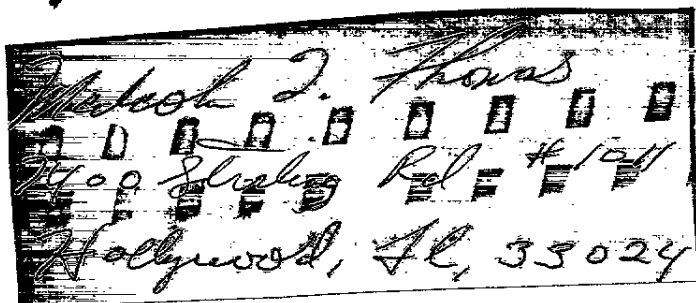 Malcolm J. Thomas
7400 Stirling Rd #1011
Hollywood, FL, 33024